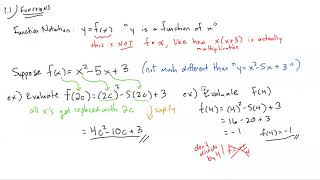 1.1) FUNCTIONS
Function Notation: y=f(x) "y is a function of x"
this is NOT f·x, like how x(x+3) is actually multiplication
Suppose f(x)=x²-5x+3 (not much different than "y=x²-5x+3")
ex) Evaluate f(2c)=(2c)²-5(2c)+3
all x's get replaced with 2c ↓ simplify
= 4c²-10c+3
ex) Evaluate f(4)
f(4)=(4)²-5(4)+3
= 16-20+3
= -1 f(4)=-1
don't divide by 4!